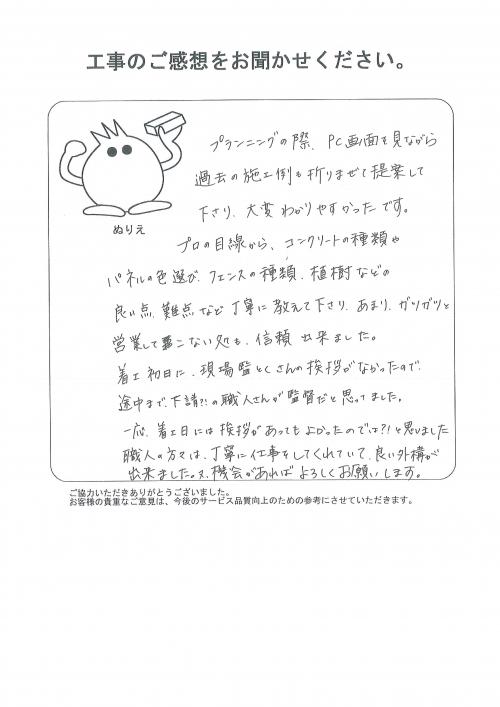 工事のご感想をお聞かせください。
ぬりえ
プランニングの際、PC画面を見ながら
過去の施工例も折りまぜて提案して
下さり、大変わかりやすかったです。
プロの目線から、コンクリートの種類や
パネルの色選び、フェンスの種類、植樹などの
良い点、難点など丁寧に教えて下さり、あまり、ガツガツと
営業して来ない処も、信頼出来ました。
着工初日に、現場監とくさんの挨拶がなかったので、
途中まで、下請?!の職人さんが監督だと思ってました。
一応、着工日には挨拶があってもよかったのでは?!と思いました
職人の方々は、丁寧に仕事をしてくれていて、良い外構が
出来ました。又、機会があればよろしくお願いします。
ご協力いただきありがとうございました。
お客様の貴重なご意見は、今後のサービス品質向上のための参考にさせていただきます。